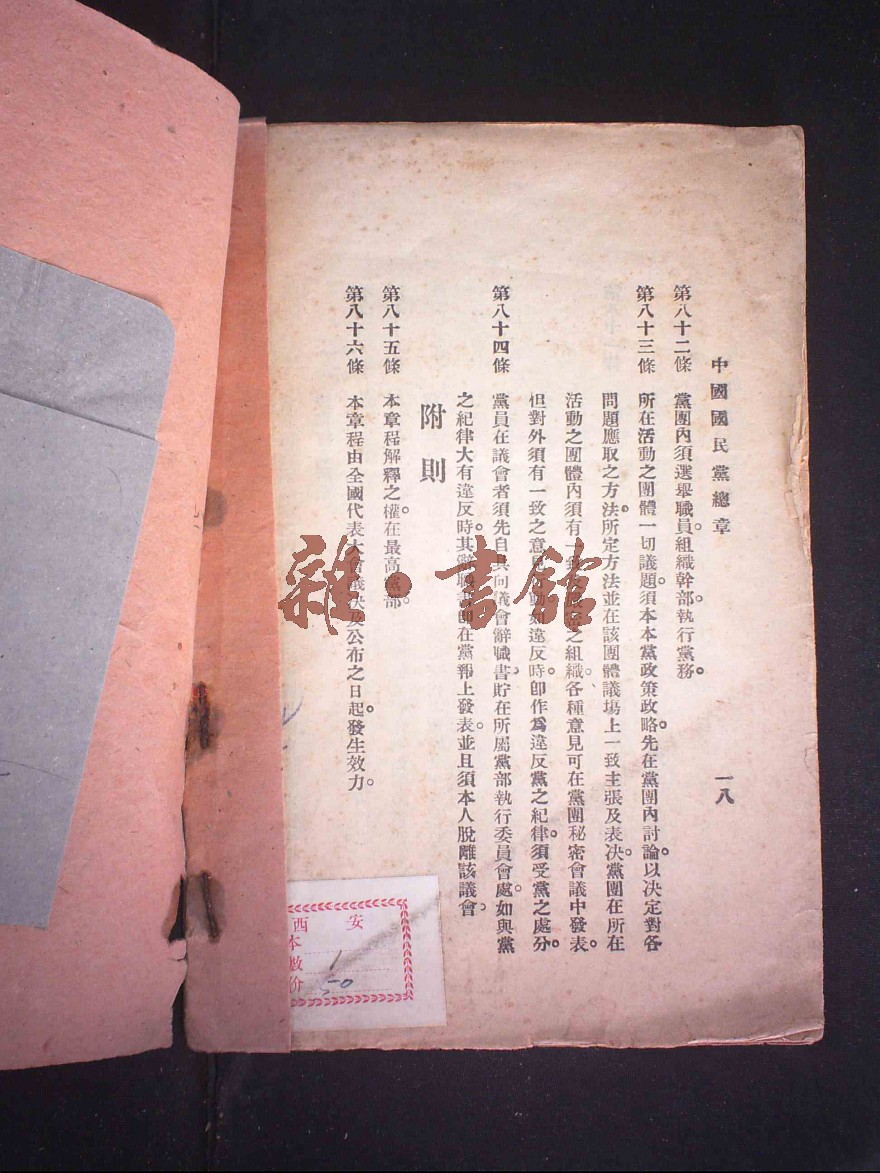 中國國民黨總章
一八
第八十二條　黨團內須選舉職員。組織幹部。執行黨務。
第八十三條　所在活動之團體一切議題。須本本黨政策政略。先在黨團內討論。以决定對各
問題應取之方法。所定方法並在該團體議塲上一致主張及表决。黨團在所在
活動之團體內須有一致及嚴密之組織。各種意見可在黨團秘密會議中發表。
但對外須有一致之意見行動。如違反時。卽作爲違反黨之紀律。須受黨之處分。
第八十四條　黨員在議會者須先自具向議會辭職書。貯在所屬黨部執行委員會處。如與黨
之紀律大有違反時。其辭職書卽在黨報上發表。並且須本人脫離該議會。
附則
第八十五條　本章程解釋之權。在最高黨部。
第八十六條　本章程由全國代表大會議决及公布之日起。發生效力。
雜·書館
西安
本
数 1
价 50